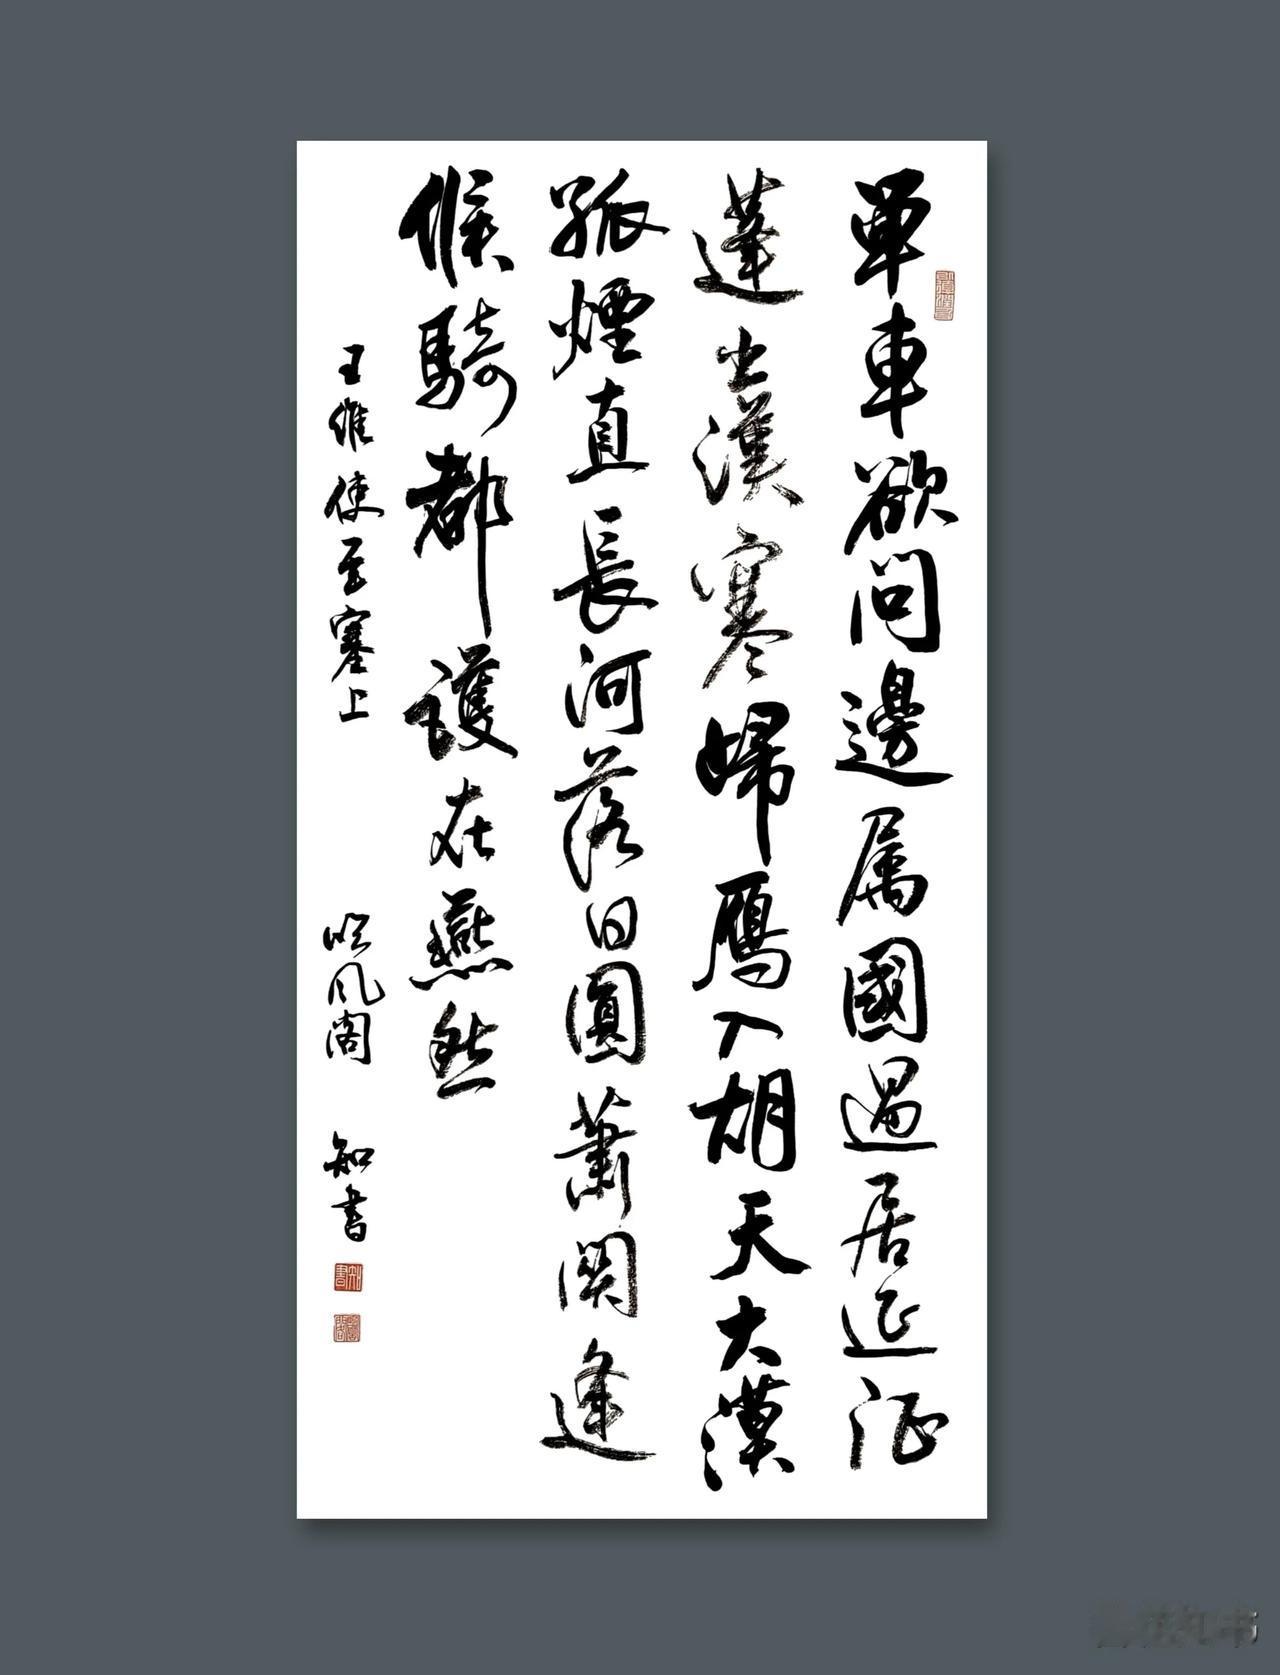 單車欲問邊属國過居延征
蓬出漢寒歸鴈入胡天大漠
孤煙直長河落日圓蕭関逢
候騎都護在燕然
王維使至塞上 吟风阁 知書